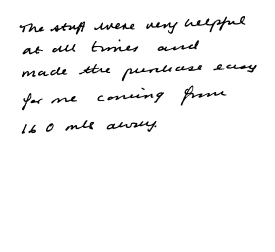 The staff were very helpful
at all times and
made the purchase easy
for me coming from
160 mls away.